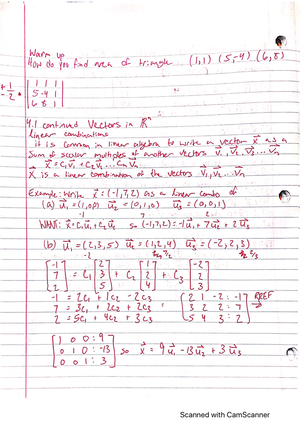 Warm up
How do you find area of triangle (1,1) (5,-4) (6,8)
± 1/2 * | 1 1 1 |
| 5 -4 1 |
| 6 8 1 |
4.1 continued Vectors in ℝⁿ
linear combinations
it is common in linear algebra to write a vector x⃗ as a
sum of scalar multiples of another vectors v⃗₁, v⃗₂, v⃗₃ ... v⃗ₙ
x⃗ = c₁v⃗₁ + c₂v⃗₂ ... cₙv⃗ₙ
x⃗ is a linear combination of the vectors v⃗₁, v⃗₂ ... v⃗ₙ
Example: Write x⃗ = (-1,7,2) as a linear combo of
(a) u⃗₁ = (1,0,0) u⃗₂ = (0,1,0) u⃗₃ = (0,0,1)
-1 7 2
WANT: x⃗ = c₁u⃗₁ + c₂u⃗₂ so (-1,7,2) = -1u⃗₁ + 7u⃗₂ + 2u⃗₃
(b) u⃗₁ = (2,3,5) u⃗₂ = (1,2,4) u⃗₃ = (-2,2,3)
[-1 7 2] = c₁ [2 3 5] + c₂ [1 2 4] + c₃ [-2 2 3]
-1 = 2c₁ + 1c₂ - 2c₃ [2 1 -2 : -1] RREF
7 = 3c₁ + 2c₂ + 2c₃ = [3 2 2 : 7] →
2 = 5c₁ + 4c₂ + 3c₃ [5 4 3 : 2]
[1 0 0 : 9]
[0 1 0 : -13] so x⃗ = 9u⃗₁ - 13u⃗₂ + 3u⃗₃
[0 0 1 : 3]
Scanned with CamScanner